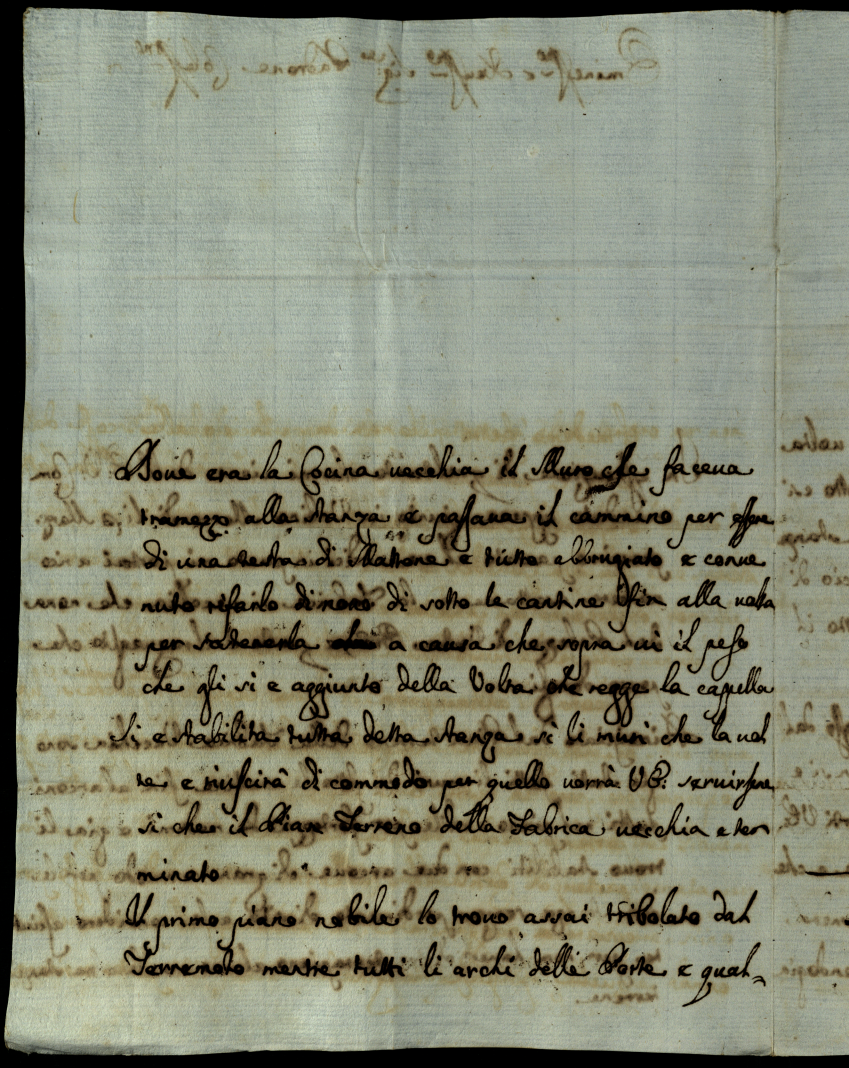 Doue era la Cocina uecchia il Muro che faceua
tramezo alla stanza e passaua il cammino per essere
di una testa di Mattone e tutto abbrugiato e conue
nuto rifarlo di nouo di sotto le cantine sfin alla uolta
per sostenerla a causa che sopra ui il peso
che gli si e aggiunto della Volta che regge la cappella
Si e stabilita tutta detta stanza si li muri che la uol
ta e riuscirà di commodo per quello uorrà VE: seruirsene
si che il Piano Terreno della Fabrica uecchia e ter
minato
Il primo piano nobile lo trouo assai tribolato dal
Terremoto mentre tutti li archi delle Porte e qual=